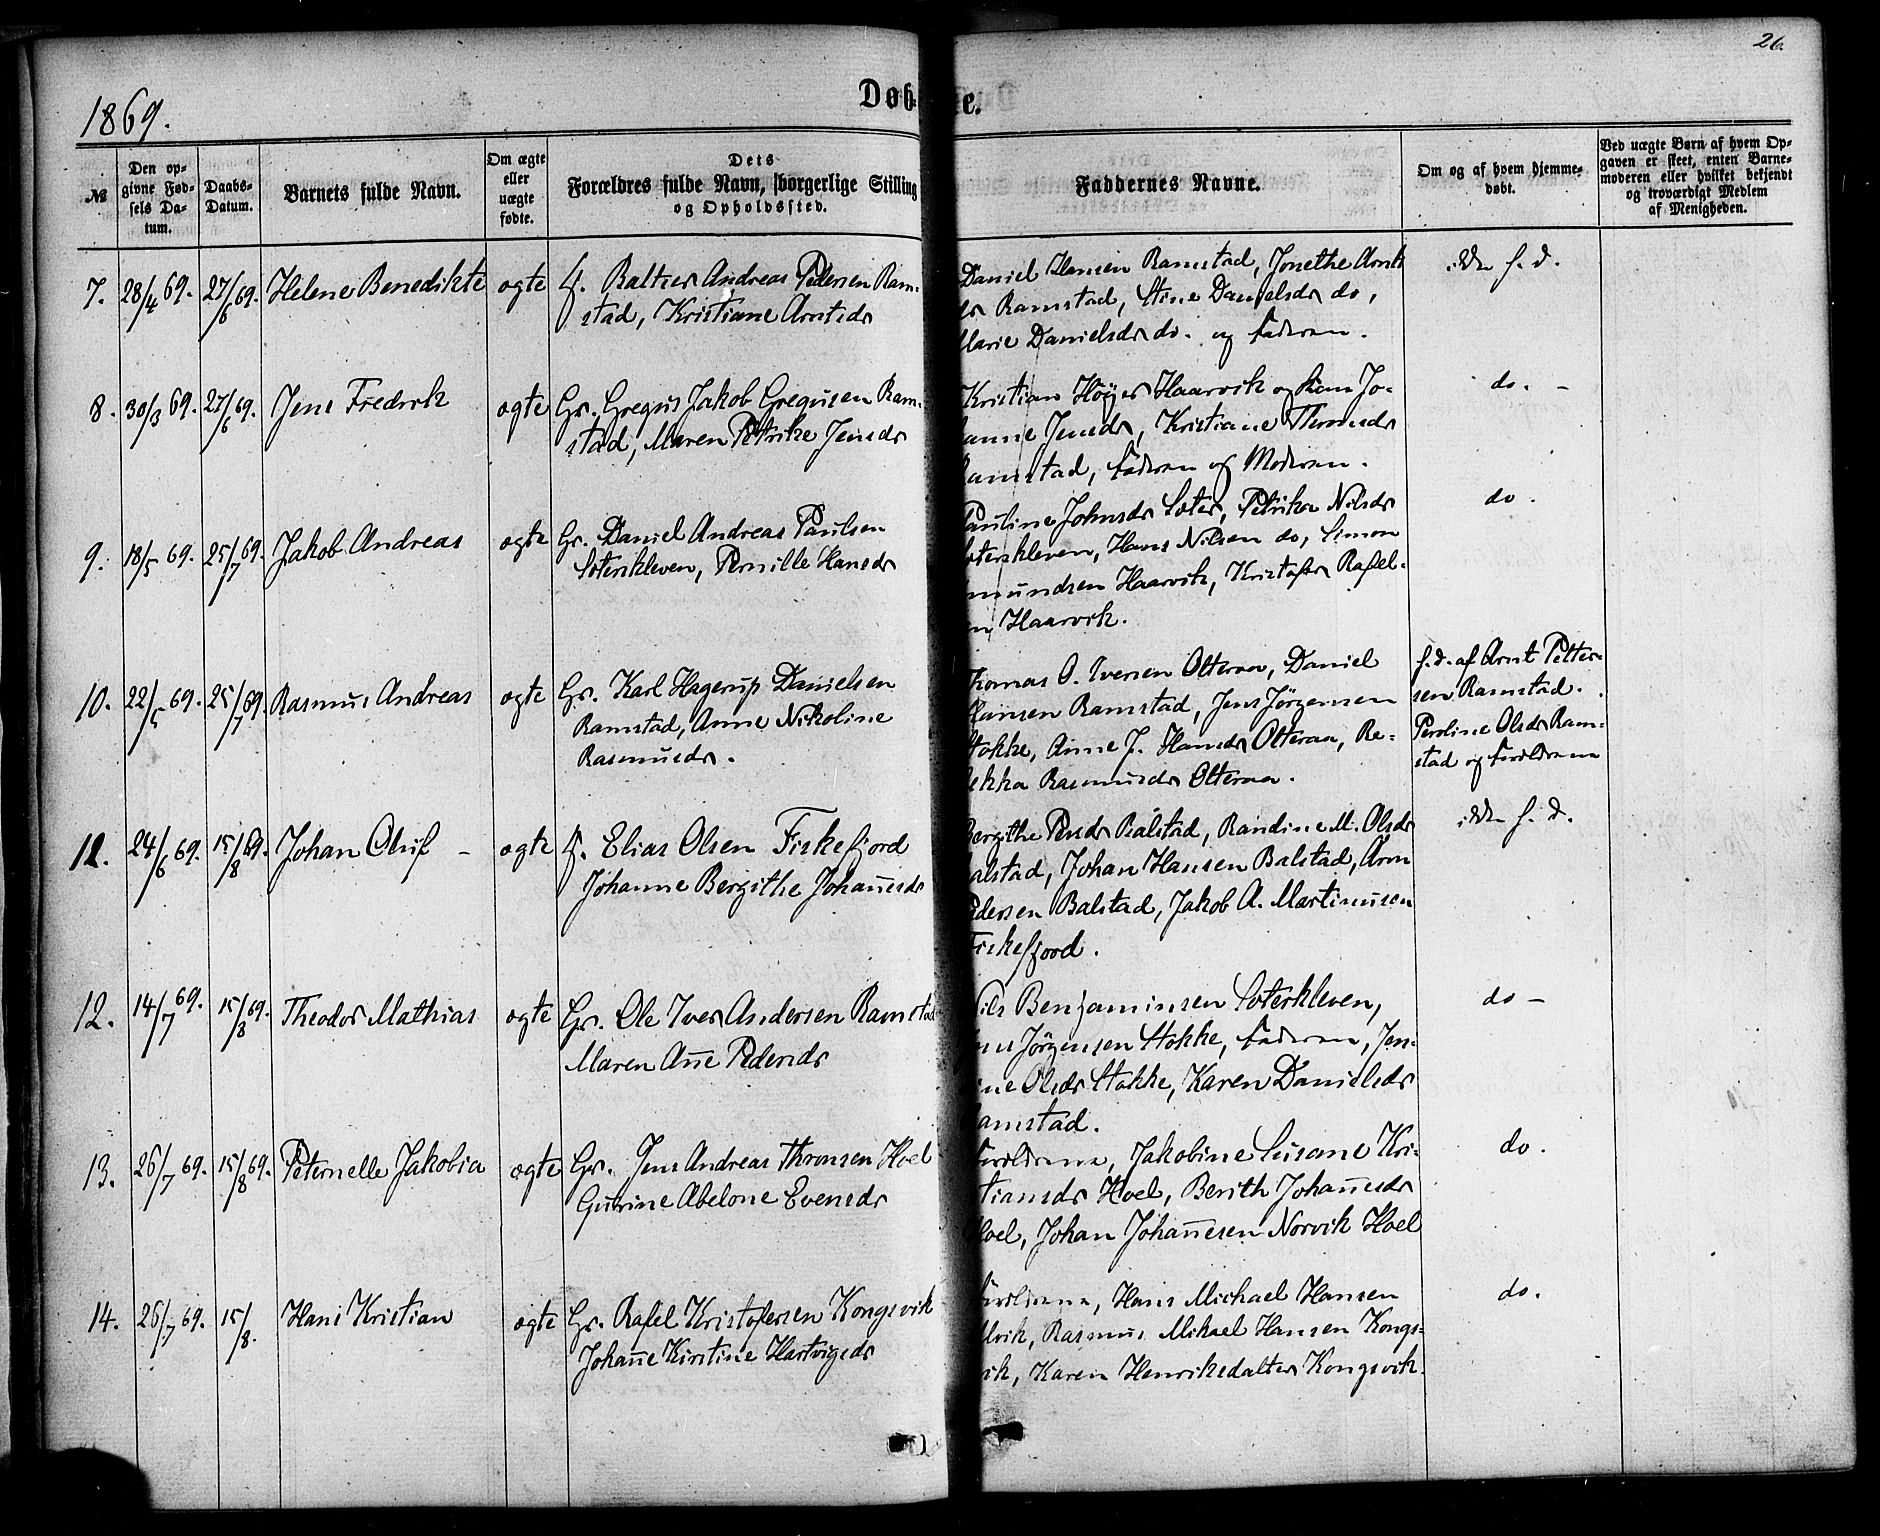 26.
1869.
Døb- te.
№
Den opgivne Fødsels Datum.
Daabs-Datum.
Barnets fulde Navn.
Om ægte eller uægte fødte.
Dets Forældres fulde Navn, borgerlige Stilling og Opholdssted.
Faddernes Navne.
Om og af hvem hjemmedøbt.
Ved uægte Børn af hvem Opgaven er skeet, enten Barnemoderen eller hvilket bekjendt og troværdigt Medlem af Menigheden.
7. 28/4 69. 27/6 69. Helene Benedikte ægte
f. Baltser Andreas Pedersen Ram-
stad, Kristiane Arntsdr
Daniel Hansen Ramstad, Jonethe Arnts
dr Ramstad, Stine Danielsdr do,
Marie Danielsdr do. og Faderen.
ikke h. d.
8. 30/3 69. 27/6 69. Jens Fredrik ægte
Gr. Gregus Jakob Gregusen Ram-
stad, Maren Petrike Jensdr
Kristian Höyer Haarvik og Kone Jo-
hanne Jensdr, Kristiane Thomsdr
Ramstad, Faderen og Moderen.
do. -
9. 18/5 69. 25/7 69. Jakob Andreas ægte
Gr. Daniel Andreas Paulsen
Soterkleven, Pernille Hansdr
Pauline Johnsdr Soter, Petrika Nilsdr
Soterskleven, Hans Nilsen do, Simon
mundsen Haarvik, Kristofer Rafel-
en Haarvik.
do.
10. 22/5 69. 25/7 69. Rasmus Andreas ægte
Gr. Karl Hagerup Danielsen
Ramstad, Anne Nikoline
Rasmusdr.
Thomas O. Iversen Otteraa, Daniel
Hansen Ramstad, Jens Jörgensen
Stokke, Anne J. Hansdr Otteraa, Re-
bekka Rasmusdr Otteraa.
h. d. af Arnt Petter-
sen Ramstad.
Peroline Olsdr Ram-
stad og Forældrene
11. 24/6 69. 15/8 69. Johan Oluf - ægte
f. Elias Olsen Fiskefjord
Johanne Bergithe Johannesdr
Bergithe Pedsdr Balstad, Randine M. Olsdr
Balstad, Johan Hansen Balstad, Arn
Pedersen Balstad, Jakob A. Martinusen
Fiskefjord.
ikke h. d.
12. 14/7 69. 15/8 69. Theodor Mathias ægte
Gr. Ole Iver Andersen Ramstad
Maren Anne Pedersdr
Nils Benjaminsen Soterkleven,
Jens Jörgensen Stokke, Faderen, Jen-
ine Olsdr Stokke, Karen Danielsdr
Ramstad.
do -
13. 26/7 69. 15/8 69. Peternelle Jakobia ægte
Gr. Jens Andreas Thronsen Hoel
Gurine Abelone Evensdr
Forældrene, Jakobine Susane Kri-
stiansdr Hoel, Berith Johannesdr
Hoel, Johan Johannesen Norvik Hoel
do.
14. 26/7 69. 15/8. Hans Kristian ægte
Gr. Rafel Kristofersen Kongsvik
Johanne Kirstine Hartvigsdr
Forældrene, Hans Michael Hansen
Ulvik, Rasmus Mikael Hansen Kongs-
vik, Karen Henriksdatter Kongsvik.
do.